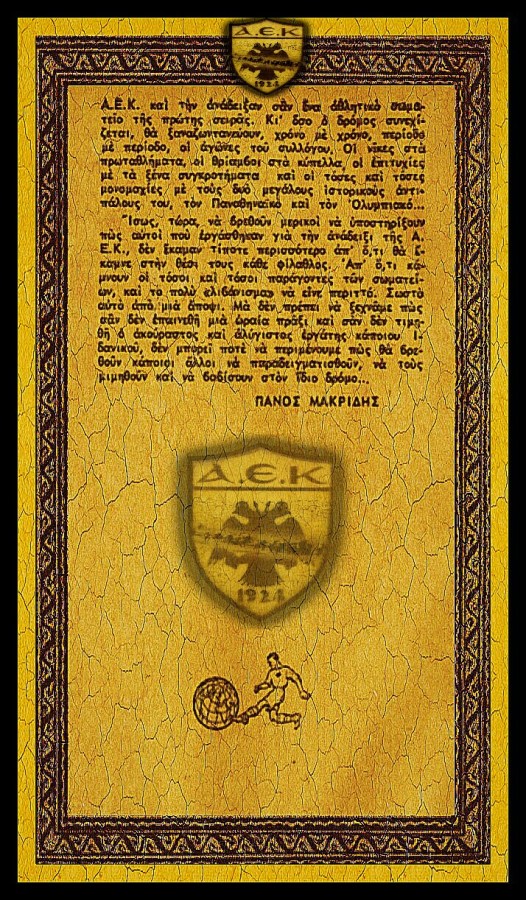 Α.Ε.Κ
1924
Α.Ε.Κ. καὶ τὴν ἀνάδειξαν σὰν ἕνα ἀθλητικὸ σωμα-
τεῖο τῆς πρώτης σειρᾶς. Κι' ὅσο ὁ δρόμος συνεχί-
ζεται, θὰ ξαναζωντανεύουν, χρόνο μὲ χρόνο, περίοδο
μὲ περίοδο, οἱ ἀγῶνες τοῦ συλλόγου. Οἱ νίκες στὰ
πρωταθλήματα, οἱ θρίαμβοι στὰ κύπελλα, οἱ ἐπιτυχίες
μὲ τὰ ξένα συγκροτήματα καὶ οἱ τόσες καὶ τόσες
μονομαχίες μὲ τοὺς δυὸ μεγάλους ἱστορικοὺς ἀντι-
πάλους του, τὸν Παναθηναϊκὸ καὶ τὸν Ὀλυμπιακό...
Ἴσως, τώρα, νὰ βρεθοῦν μερικοὶ νὰ ὑποστηρίξουν
πὼς αὐτοὶ ποὺ ἐργάσθηκαν γιὰ τὴν ἀνάδειξι τῆς Α.
Ε.Κ. δὲν ἔκαμαν τίποτε περισσότερο ἀπ' ὅ,τι θὰ ἔ-
καμνε στὴν θέσι τους κάθε φίλαθλος. Ἀπ' ὅ,τι κά-
μνουν οἱ τόσοι καὶ τόσοι παράγοντες τῶν σωματεί-
ων, καὶ τὸ πολὺ «λιβάνισμα» νὰ εἶνε περιττό. Σωστὸ
αὐτὸ ἀπὸ μιὰ ἄποψι. Μὰ δὲν πρέπει νὰ ξεχνᾶμε πὼς
σὰν δὲν ἐπαινεθῆ μιὰ ὡραία πρᾶξι καὶ σὰν δὲν τιμη-
θῆ ὁ ἀκούραστος καὶ ἀλύγιστος ἐργάτης κάποιου ἰ-
δανικοῦ, δὲν μπορεῖ ποτὲ νὰ περιμένουμε πὼς θὰ βρε-
θοῦν κάποιοι ἄλλοι νὰ παραδειγματισθοῦν, νὰ τοὺς
μιμηθοῦν καὶ νὰ βαδίσουν στὸν ἴδιο δρόμο...
ΠΑΝΟΣ ΜΑΚΡΙΔΗΣ
Α.Ε.Κ
1924